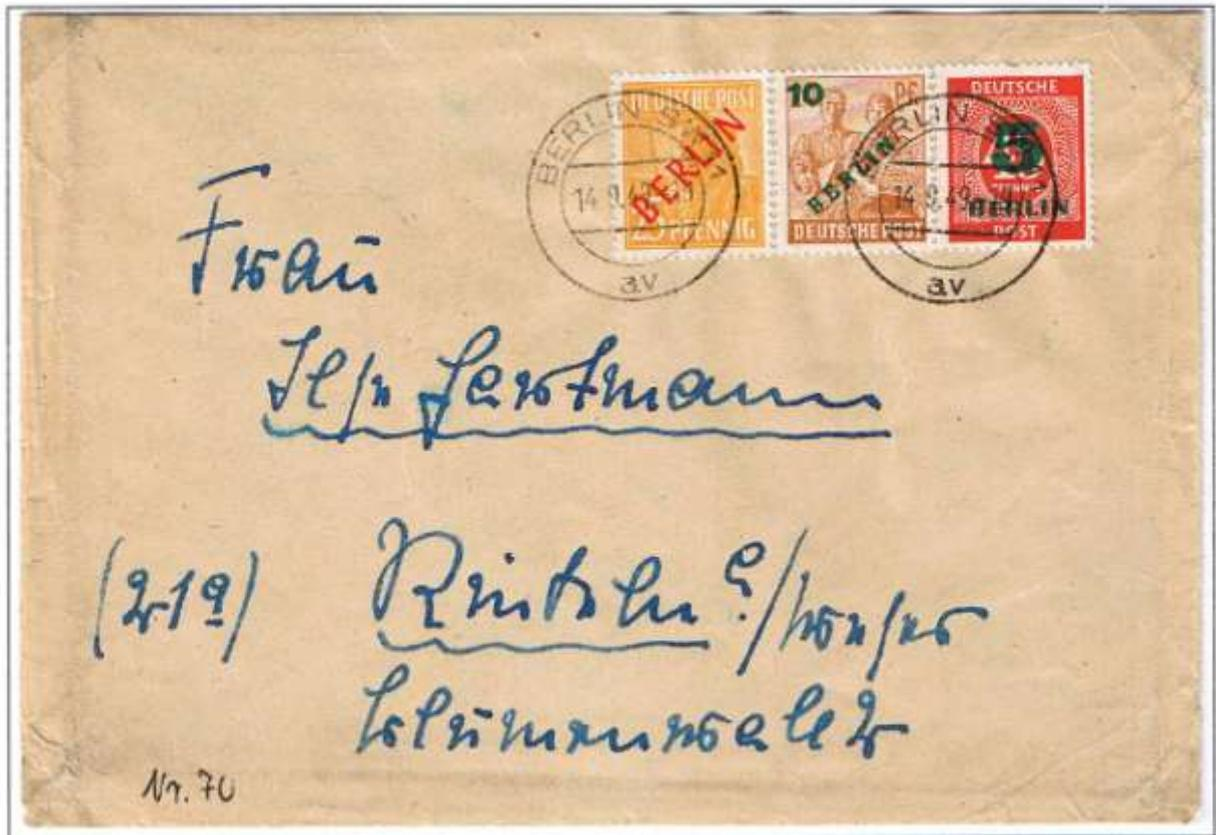 DEUTSCHE POST
BERLIN
25 PFENNIG
10 PF
BERLIN
DEUTSCHE POST
DEUTSCHE
5
PFENNIG
BERLIN
POST
BERLIN
14 9.49
av
BERLIN
14 9.49
av
Frau
Ilse Hartmann
(21a) Rinteln a/Weser
Blumenwall 2
Nr. 70